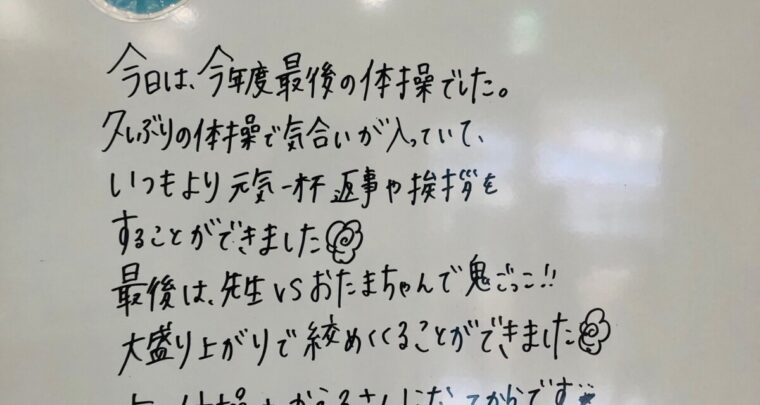 今日は、今年度最後の体操でした。
久しぶりの体操で気合いが入っていて、
いつもより元気一杯返事や挨拶を
することができました
最後は、先生VSおたまちゃんで鬼ごっこ!!
大盛り上がりで絞めくくることができました
かえるさんになってからです